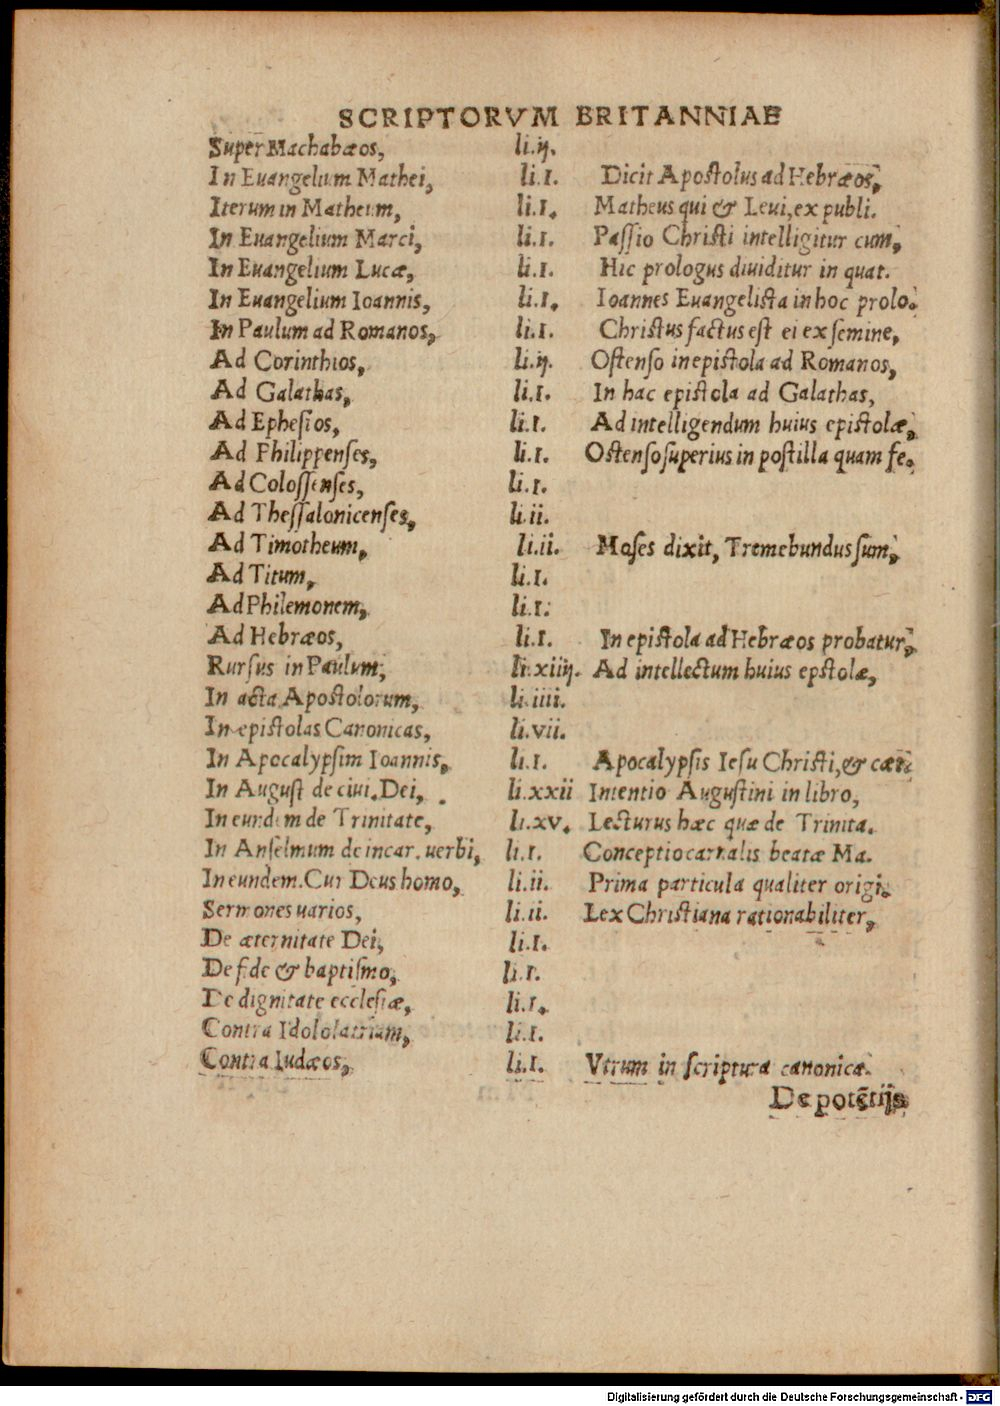 SCRIPTORVM BRITANNIAE
Super Machabæos, li.ij.
In Euangelium Mathei, li.I. Dicit Apostolus ad Hebræos,
Iterum in Matheum, li.I. Matheus qui & Leui, ex publi.
In Euangelium Marci, li.I. Passio Christi intelligitur cum,
In Euangelium Lucæ, li.I. Hic prologus diuiditur in quat.
In Euangelium Ioannis, li.I. Ioannes Euangelista in hoc prolo.
In Paulum ad Romanos, li.I. Christus factus est ei ex semine,
Ad Corinthios, li.ij. Ostenso in epistola ad Romanos,
Ad Galathas, li.I. In hac epistola ad Galathas,
Ad Ephesios, li.I. Ad intelligendum huius epistolæ,
Ad Philippenses, li.I. Ostenso superius in postilla quam fe.
Ad Colossenses, li.I.
Ad Thessalonicenses, li.ii.
Ad Timotheum, li.ii. Moses dixit, Tremebundus sum,
Ad Titum, li.I.
Ad Philemonem, li.I.
Ad Hebræos, li.I. In epistola ad Hebræos probatur,
Rursus in Paulum, li.xiiij. Ad intellectum huius epstolæ,
In acta Apostolorum, li.iiii.
In epistolas Canonicas, li.vii.
In Apocalypsim Ioannis, li.I. Apocalypsis Iesu Christi, & cæt.
In August de ciui. Dei, li.xxii Intentio Augustini in libro,
In eundem de Trinitate, li.xv. Lecturus hæc quæ de Trinita.
In Anselmum de incar. uerbi, li.I. Conceptio carnalis beatæ Ma.
In eundem. Cur Deus homo, li.ii. Prima particula qualiter origi.
Sermones uarios, li.ii. Lex Christiana rationabiliter,
De æternitate Dei, li.I.
De fide & baptismo, li.I.
De dignitate ecclesiæ, li.I.
Contra Idololatriam, li.I.
Contra Iudæos, li.I. Vtrum in scriptura canonica.
De potētijs
Digitalisierung gefördert durch die Deutsche Forschungsgemeinschaft - DFG